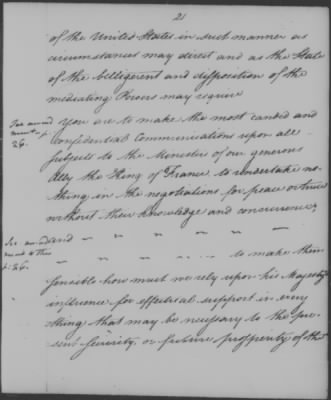 21
of the United States in such manner as
circumstances may direct and as the State
of the belligerent and disposition of the
mediating Powers may require
You are to make the most candid and
confidential Communications upon all
Subjects to the Minister of our generous
Ally the King of France to undertake no-
thing in the negotiations for peace or truce
without their knowledge and concurrence,
See amend
ment p.
26.
and – – – – –
– – – – – to make them
See amend
ment to this
p. 26.
sensible how much we rely upon his Majesty's
influence for effectual support in every
thing that may be necessary to the pre-
sent security or future prosperity of the